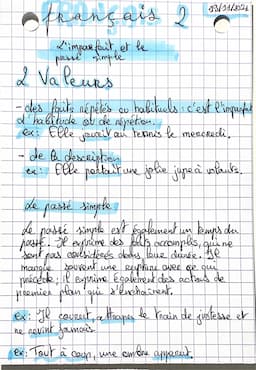 français 2
L'imparfait et le
passé simple
2 Valeurs
- des faits répétés ou habituels : c'est l'imparfait
d'habitude ou de répétition.
ex : Elle jouait au tennis le mercredi.
- de la description
ex : Elle portait une jolie jupe à volants.
Le passé simple
Le passé simple est également un temps du
passé. Il exprime des faits accomplis, qui ne
sont pas considérés dans leur durée. Il
marque souvent une rupture avec ce qui
précède ; il exprime également des actions de
premier plan qui s'enchaînent.
ex : Il courut, attrapa le train de justesse et
ne revint jamais.
ex : Tout à coup, une ombre apparut.